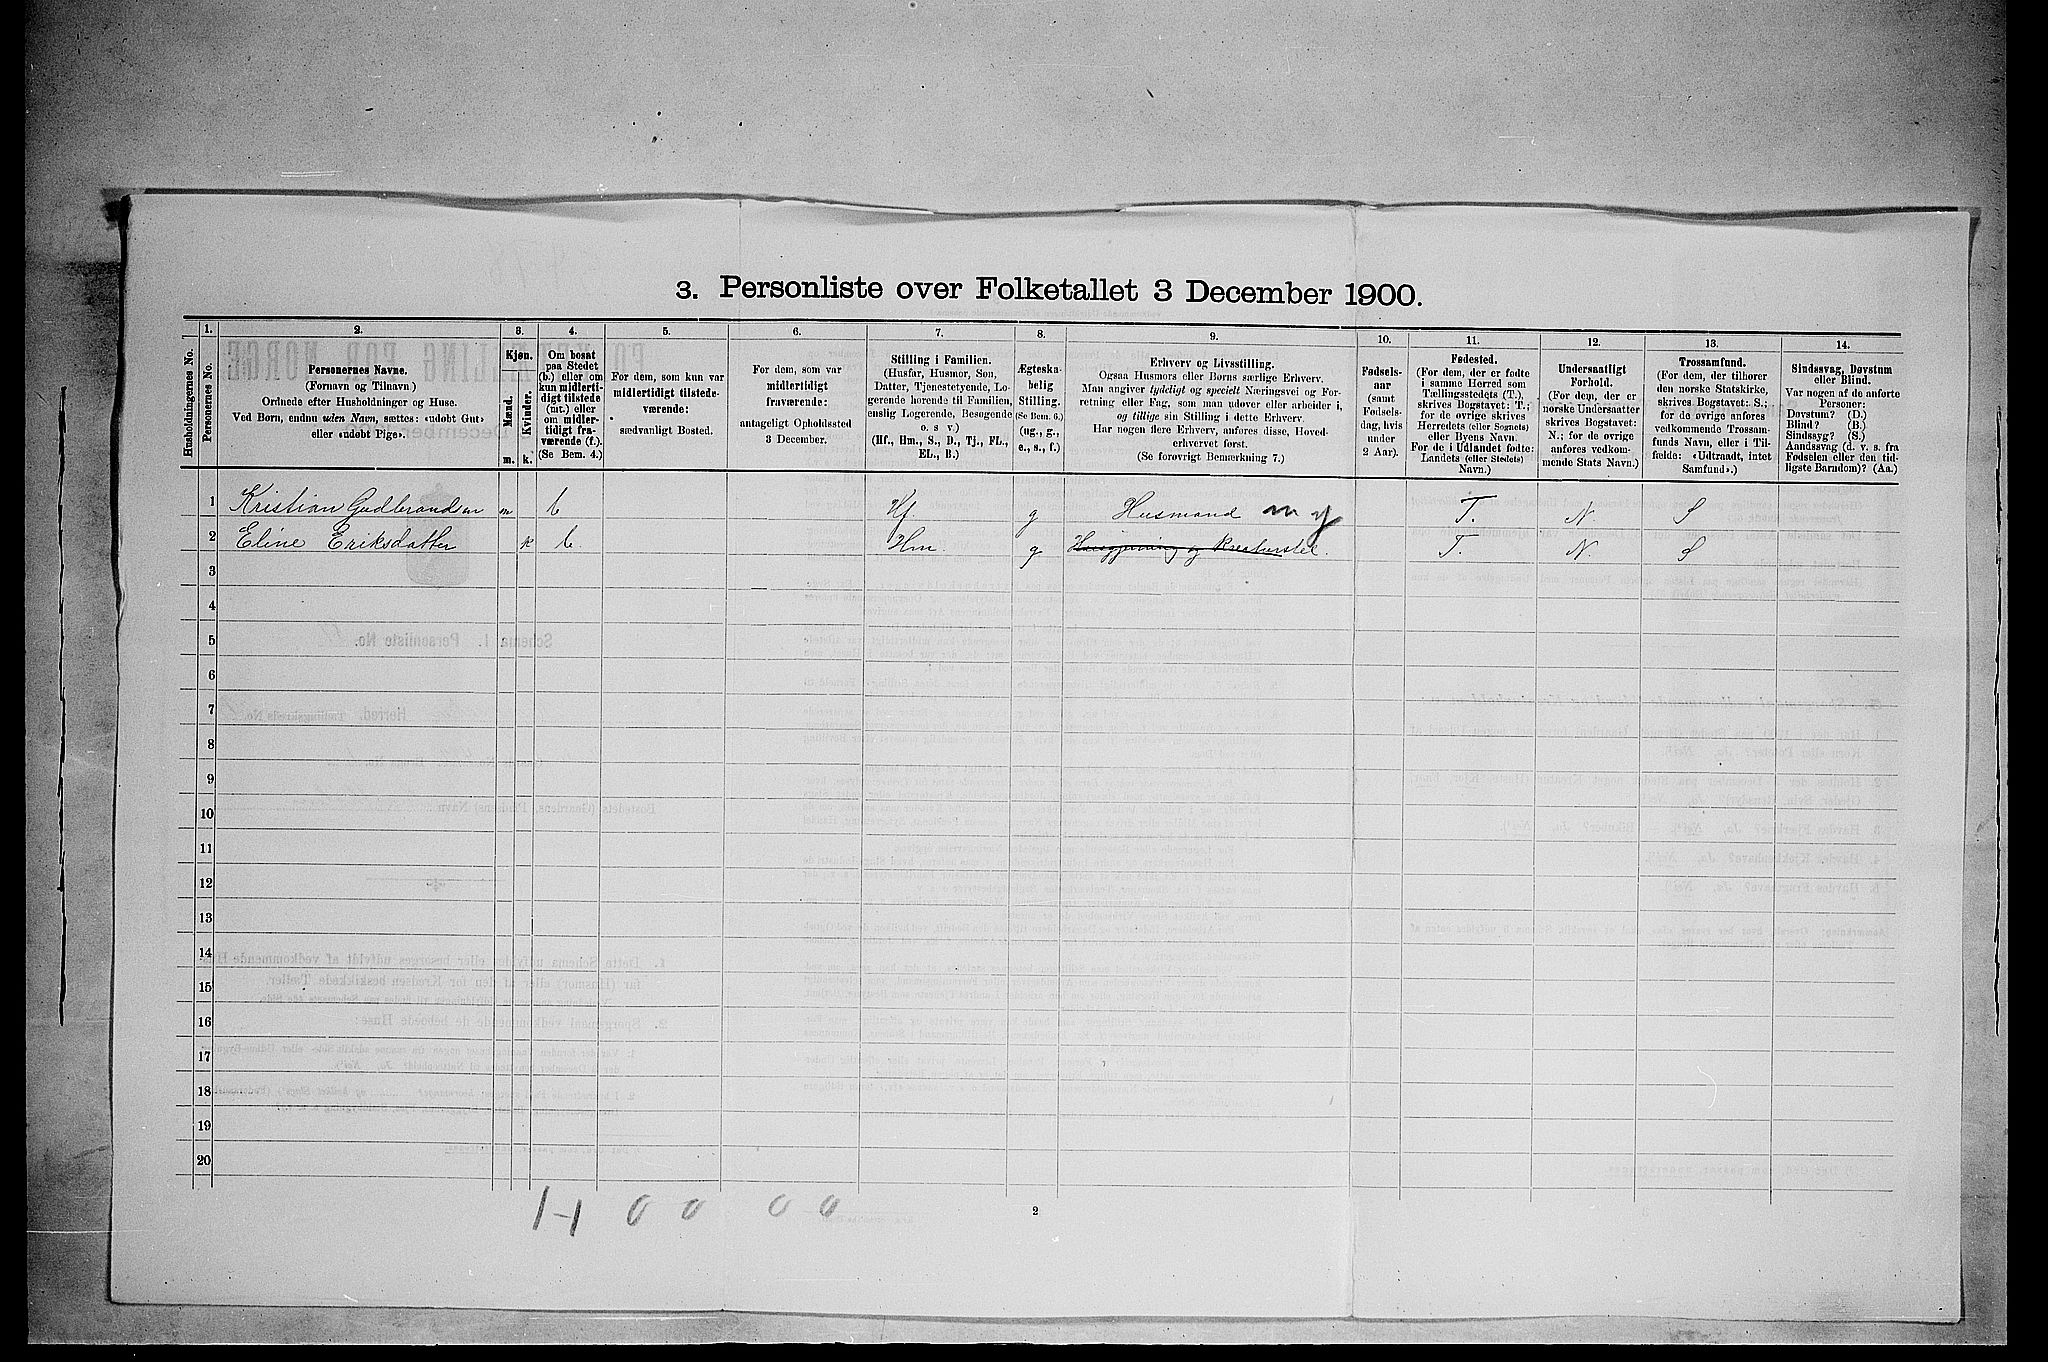 3. Personliste over Folketallet 3 December 1900.
1. 2. 3. 4. 5. 6. 7. 8. 9. 10. 11. 12. 13. 14.
Husholdningernes No.
Personernes No.
Personernes Navne.
(Fornavn og Tilnavn.)
Ordnede efter Husholdninger og Huse.
Ved Børn, endnu uden Navn, sættes: «udøbt Gut»
eller «udøbt Pige».
Kjøn.
Mænd.
Kvinder.
m. k.
Om bosat
paa Stedet
(b.) eller om
kun midlerti-
digt tilstede
(mt.) eller
om midler-
tidigt fra-
værende (f.)
(Se Bem. 4.)
For dem, som kun var
midlertidigt tilstede-
værende:
sædvanligt Bosted.
For dem, som var
midlertidigt
fraværende:
antageligt Opholdssted
3 December.
Stilling i Familien.
(Husfar, Husmor, Søn,
Datter, Tjenestetyende, Lo-
gerende hørende til Familien,
enslig Logerende, Besøgende
o. s v.)
(Hf., Hm., S., D., Tj., FL.,
EL., B.)
Ægteska-
belig
Stilling.
(Se Bem. 6.)
(ug., g.,
e., s., f.)
Erhverv og Livsstilling.
Ogsaa Husmors eller Børns særlige Erhverv.
Man angiver tydeligt og specielt Næringsvei og For-
retning eller Fag, som man udøver eller arbeider i,
og tillige sin Stilling i dette Erhverv.
Har nogen flere Erhverv, anføres disse, Hoved-
erhvervet først.
(Se forøvrigt Bemærkning 7.)
Fødsels-
aar
(samt
Fødsels-
dag, hvis
under
2 Aar).
Fødested.
(For dem, der er fødte
i samme Herred som
Tællingsstedets (T.),
skrives Bogstavet: T.;
for de øvrige skrives
Herredets (eller Sognets)
eller Byens Navn.
For de i Udlandet fødte:
Landets (eller Stedets)
Navn.)
Undersaatligt
Forhold.
(For dem, der er
norske Undersaatter
skrives Bogstavet:
N.; for de øvrige
anføres vedkom-
mende Stats Navn.)
Trossamfund.
(For dem, der tilhører
den norske Statskirke,
skrives Bogstavet: S.;
for de øvrige anføres
vedkommende Trossam-
funds Navn, eller i Til-
fælde: «Udtraadt, intet
Samfund».)
Sindssvag, Døvstum
eller Blind.
Var nogen af de anførte
Personer:
Døvstum? (D.)
Blind? (B.)
Sindssyg? (S.)
Aandssvag (d. v. s. fra
Fødselen eller den tid-
ligste Barndom)? (Aa.)
1 Kristian Gudbrandsen m b Hf. g Husmand m j T. N. S
2 Eline Eriksdatter k b. Hm. g Husgjerning og Kreaturstel. T. N. S
3
4
5
6
7
8
9
10
11
12
13
14
15
16
17
18
19
20
1-1 0 0 0 0
2